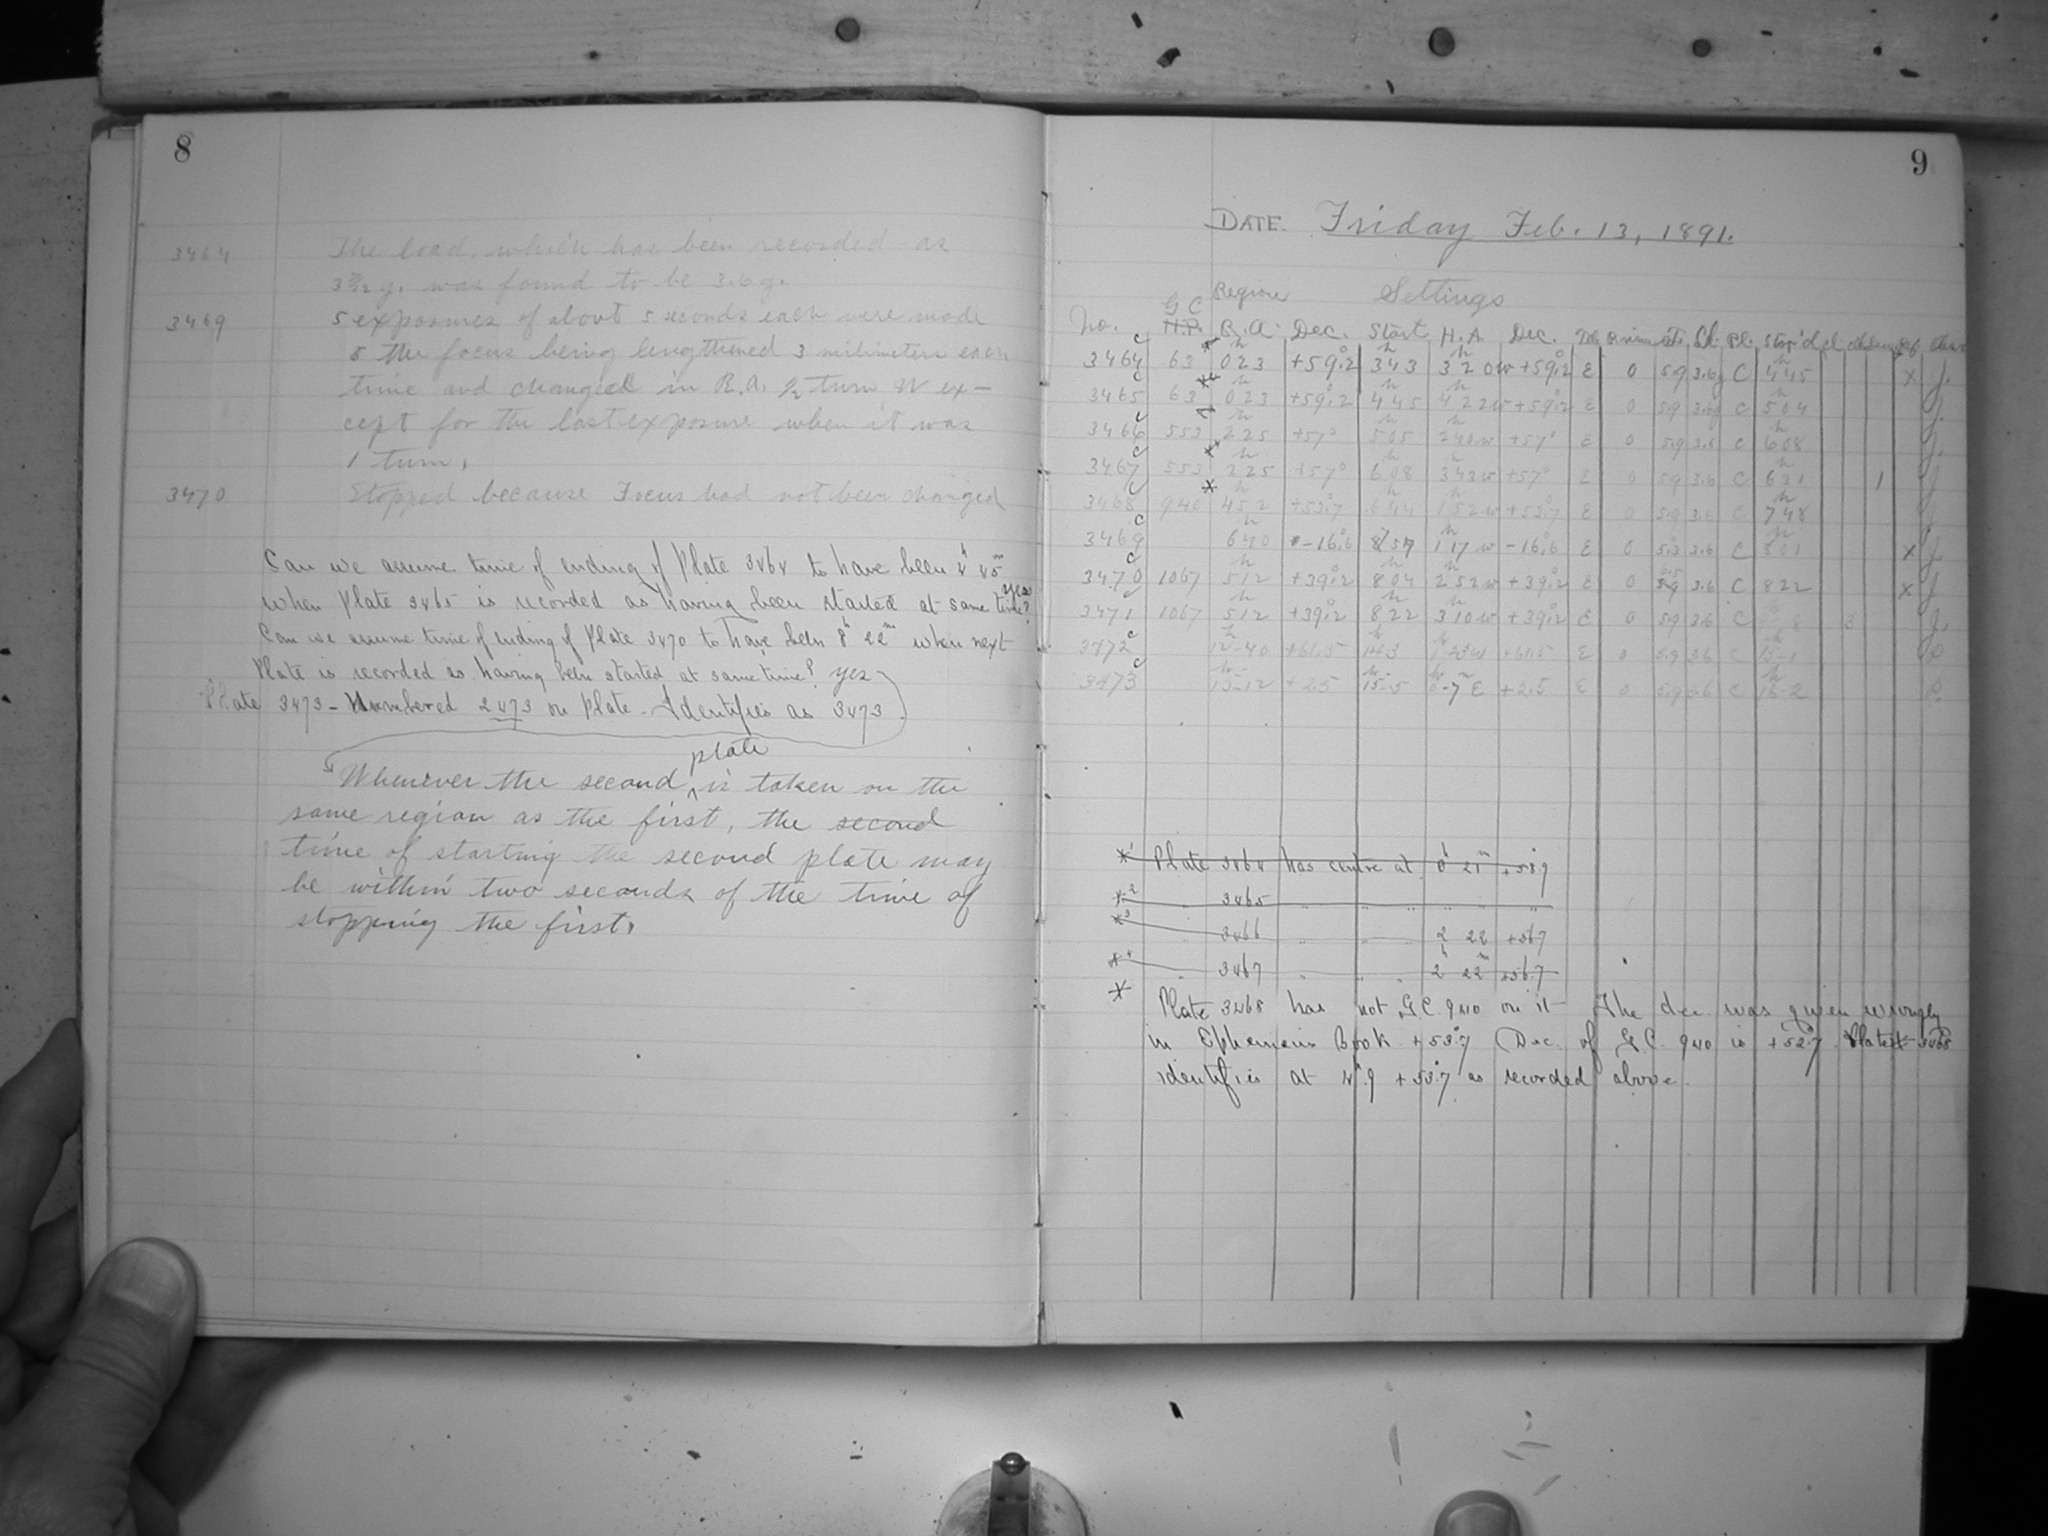 8
3464 The load, which has been recorded as
3 9/12 g. was found to be 3.6 g.
3469 5 exposures of about 5 seconds each were made
the focus being lengthened 3 milimeters each
time and changed in R.A. 1/2 turn W ex-
cept for the last exposure when it was
1 turn.
3470 Stopped because Focus had not been changed
Can we assume time of ending of Plate 3464 to have been 4h 45m
when Plate 3465 is recorded as having been started at same time? yes
Can we assume time of ending of Plate 3470 to have been 8h 22m when next
Plate is recorded as having been started at same time? yes
Plate 3473 - Numbered 2473 on Plate - Identifies as 3473
Whenever the second plate is taken on the
same region as the first, the second
time of starting the second plate may
be within two seconds of the time of
stopping the first.
9
DATE. Friday Feb. 13, 1891.
Region Settings
No. G C H.P. R.A. Dec. Start H.A. Dec.
3464 c 63 0 23 +59.2 3 43 3 20w +59.2 E 0 59 3.6g C 4 45 x J.
3465 c 63 0 23 +59.2 4 45 4 22w +59.2 E 0 59 3.6g C 5 04 J.
3466 c 553 2 25 +57° 5 05 2 40w +57° E 0 59 3.6 C 6 08 J.
3467 c 553 2 25 +57° 6 08 3 43w +57° E 0 59 3.6 C 6 31 1 J
3468 c 940 4 52 +53.7 6 44 1 52w +53.7 E 0 59 3.6 C 7 48 J
3469 c 6 40 -16.6 7 57 1 17w -16.6 E 0 3.6 C 8 01 x J.
3470 c 1067 5 12 +39.2 8 04 2 52w +39.2 E 0 59 3.6 C 8 22 x J
3471 c 1067 5 12 +39.2 8 22 3 10w +39.2 E 0 59 3.6 C 3 J.
3472 c 12-40 +61.5 14-3 1 23w +61.5 E 0 5.9 3.6 C 15-1
3473 c 15-12 +2.5 15-5 0-7 E +2.5 E 0 5.9 3.6 C 16-2
*1 Plate 3464 has centre at 0h 21m +58.9
*2 " 3465 " " " " " "
*3 " 3466 " " " 2 22 +56.7
*4 " 3467 " " " 2h 22m +56.7
* Plate 3468 has not G.C. 940 on it The dec was given wrongly
in Ephemeris Book +53.7 (Dec. of G.C. 940 is +52.7. Plate 3468
identifies at 4h.9 +53.7 as recorded above.